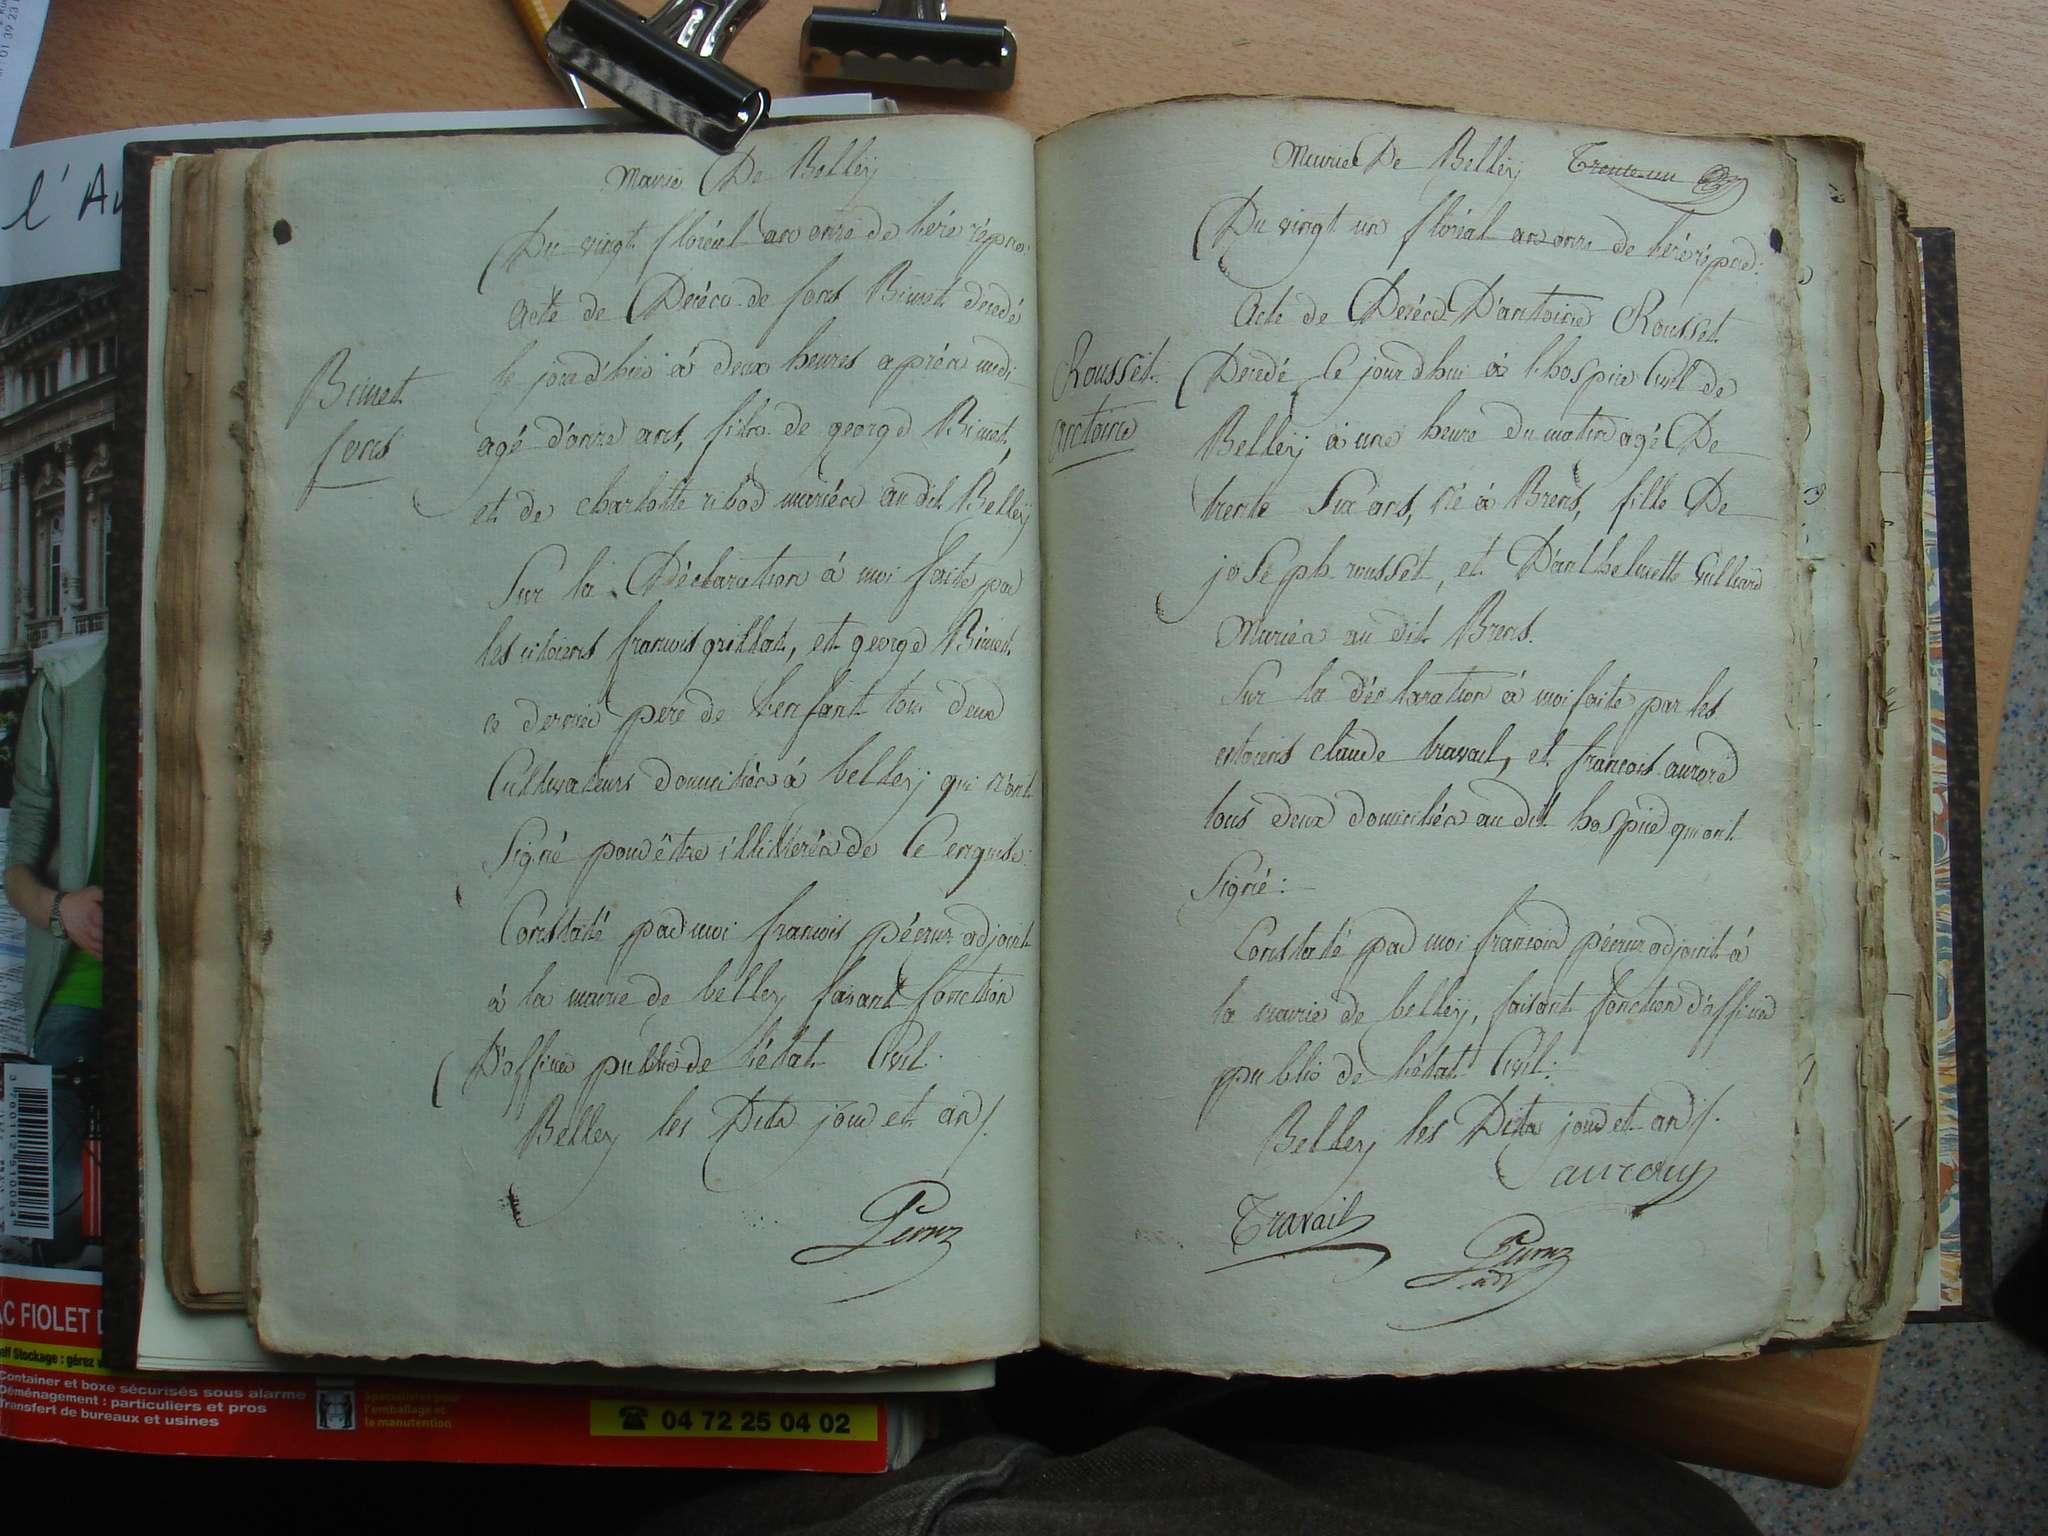 Mairie De Belley
Du vingt floréal an onze de l'ère répne:
Acte de Décès de fons Bimet décédé
le jour d'hier à deux heures après midi
Bimet
fons
agé d'onze ans, fils de george Bimet,
et de charlotte ribod mariés au dit Belley
Sur la Déclaration à moi faite par
les citoiens francois grillat, et george Bimet
ce dernier pere de l'enfant tous deux
Cultivateurs domiciliés à belley qui n'ont
Signé pour être illitérés de ce enquis:
Constaté par moi francois adjoint
à la mairie de belley faisant fonction
D'officier public de l'état Civil.
Belley les Dits jour et an
Mairie De Belley Trente-un
Du vingt un floréal an onze de l'ère répub:
Acte de Décès D'antoine Rousset
Rousset
antoine
Décédé ce jourdhui à l'hospice Civil de
Belley à une heure du matin agé De
trente Six ans, né à Brens, fille De
joseph rousset, et D'anthelmette
Mariés au dit Brens.
Sur la déclaration à moi faite par les
citoiens claude travail, et francois
tous deux domiciliés au dit hospice qui ont
Signé:
Constaté par moi francois adjoint à
la mairie de belley, faisant fonction d'officier
public de l'état Civil:
Belley les Dits jour et an
Travail
l'Au
AC FIOLET D
elf Stockage : gérez v
Container et boxe sécurisés sous alarme
Déménagement : particuliers et pros
Transfert de bureaux et usines
l'emballage et
la manutention
☎ 04 72 25 04 02